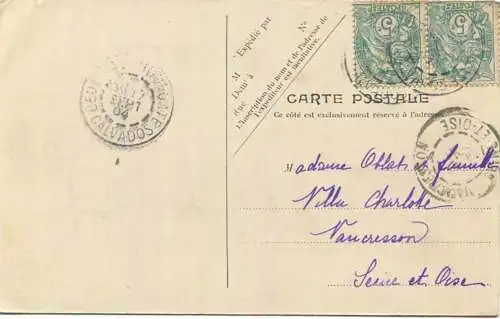 Nº
M
Expédié par
Dem^t à
rue
L'inscription du nom et de l'adresse de
l'expéditeur est facultative.
5
5
CARTE POSTALE
Ce côté est exclusivement réservé à l'adresse
Madame Oblat & famille
Villa Charlotte
Vaucresson
Seine et Oise
SEPT
04
CALVADOS
ET-OISE